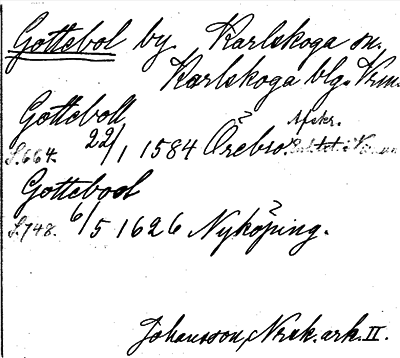 Gottebol by. Karlskoga sn.
Karlskoga blg. Vrm.
Gotteboll
Afskr.
S. 664. 22/1 1584 Örebro
Gottebool
S. 748. 6/5 1626 Nyköping.
Johansson, Norsk. ark. II.